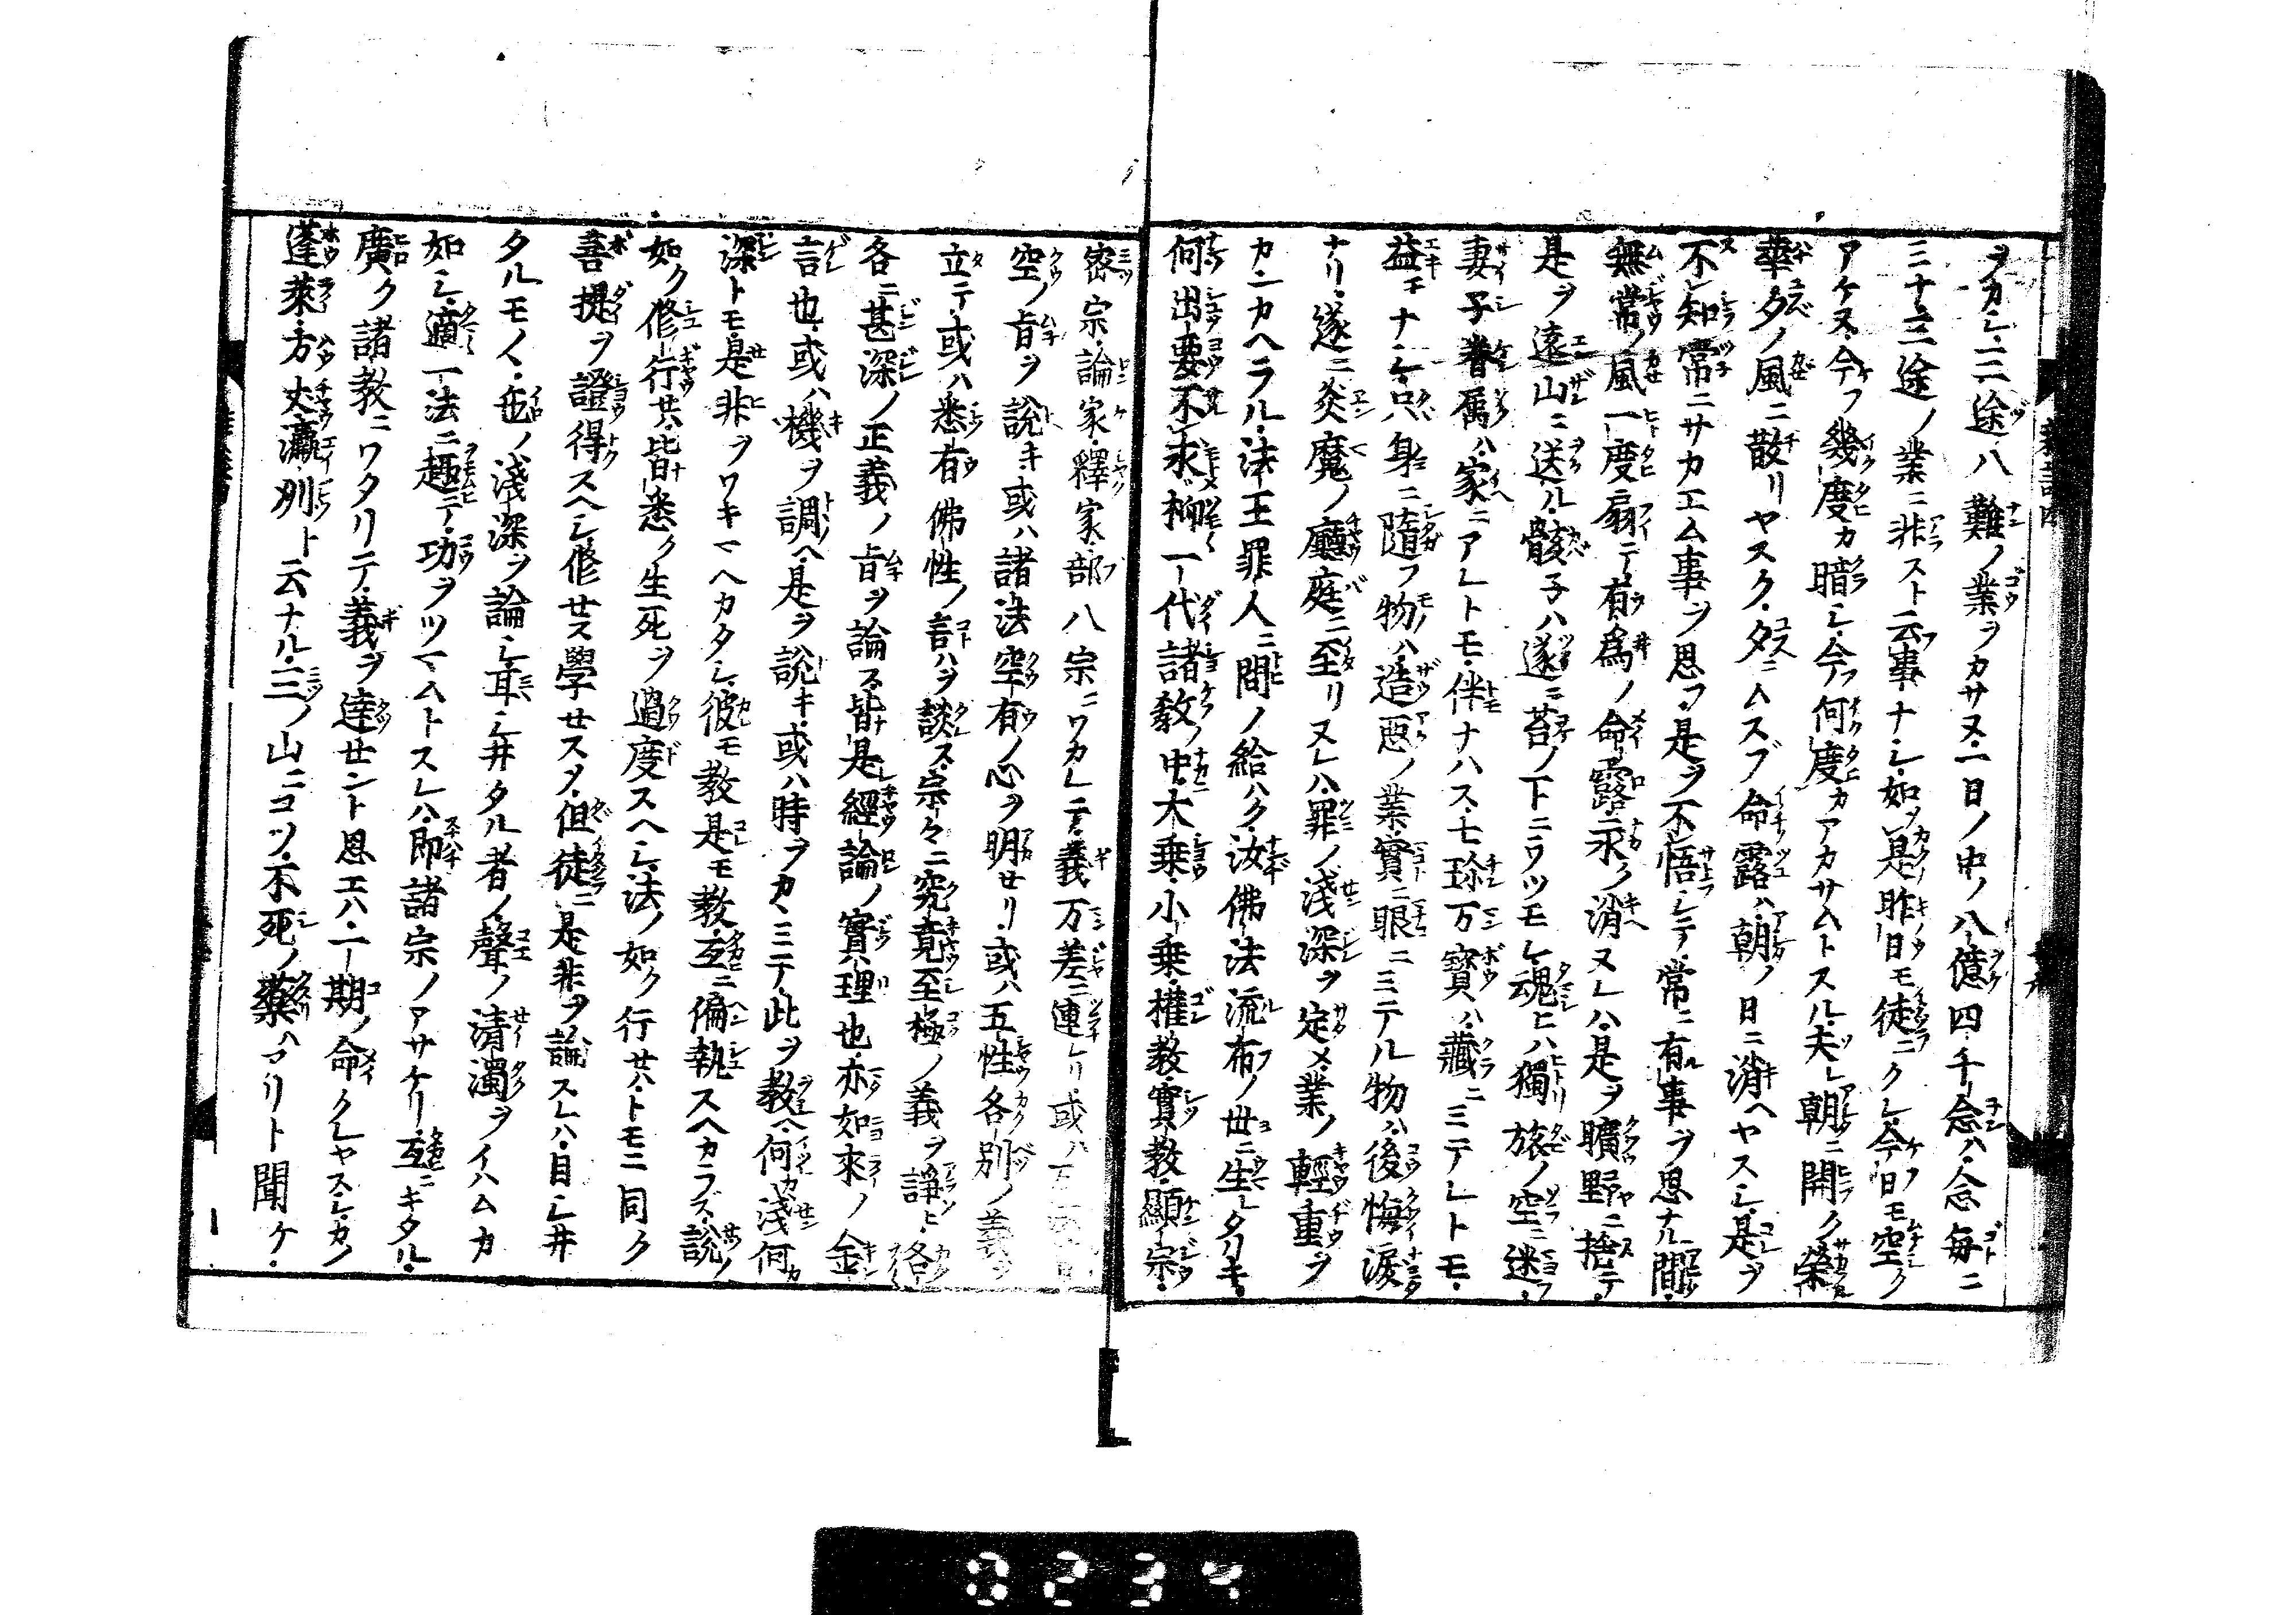 ヲカシ・三途八難ノ業ヲカサヌ・一日ノ中ノ八億四千念ハ・念毎ニ
三ナ三途ノ業ニ非スト云事ナシ・如是昨日モ徒ニクレ・今日モ空ク
アケヌ・今フ幾度カ暗シ・今フ何度カアカサムトスル・夫レ朝ニ開ク榮
華・夕ノ風ニ散リヤスク・夕ニムスブ命露ハ・朝ノ日ニ消ヘヤスシ・是ヲ
不知常ニサカエム事ヲ思フ・是ヲ不悟シテ・常ニ有事ヲ思ナル間・
無常ノ風一度扇テ・有爲ノ命露永ク消ヌレハ・是ヲ曠野ニ捨テ・
是ヲ遠山ニ送ル・骸子ハ遂ニ苔ノ下ニウツモレ・魂ヒハ獨旅ノ空ニ迷・
妻子眷属ハ・家ニアレトモ・伴ナハス・七珍万寳ハ・藏ニミテレトモ・
益モナシ・只身ニ隨フ物ハ・造惡ノ業・實ニ眼ニミテル物ハ・後悔淚
ナリ・遂ニ炎魔ノ廳庭ニ至リヌレハ・罪ノ淺深ヲ定メ・業ノ輕重ヲ
カンカヘラル・法王罪人ニ問ノ給ハク・汝佛法流布ノ世ニ生レタリキ・
何出要不求・抑一代諸教ノ中・大乗・小乗・權教・實教・顯宗・
密宗・論家・釋家・部八宗ニワカレテ・義万差ニ連レリ・或ハ
空ノ旨ヲ說キ・或ハ諸法空有ノ心ヲ明セリ・或ハ五性各別ノ義ヲ
立テ・或ハ悉有佛性ノ言ハヲ談ス・宗々ニ究竟至極ノ義ヲ諍ヒ・各
各ニ甚深ノ正義ノ旨ヲ論ス・皆是經論ノ實理也・亦如來ノ金
言也・或ハ機ヲ調ヘ是ヲ說キ・或ハ時ヲカヽミテ・此ヲ教ヘ・何カ淺何カ
深トモ・是非ヲワキマヘカタシ・彼モ教是モ教・互ニ偏執スヘカラズ・說ノ
如ク修行セハ・皆悉ク生死ヲ過度スヘシ・法ノ如ク行セハ・トモニ同ク
菩提ヲ證得スヘシ・修セス學セスヌ・但徒ニ是非ヲ論スレハ・目シ井
タルモノヽ・色ノ淺深ヲ論シ・耳シ井タル者ノ・聲ノ清濁ヲイハムカ
如シ・適一法ニ趣テ・功ヲツマムトスレハ・即諸宗ノアサケリ・互ニキタル・
廣ク諸教ニワタリテ・義ヲ達セント思エハ・一期ノ命クレヤスシ・カノ
蓬萊・方丈・瀛洲ト云ナル・三ノ山ニコソ・不死ノ藥ハアリト聞ケ・
0234